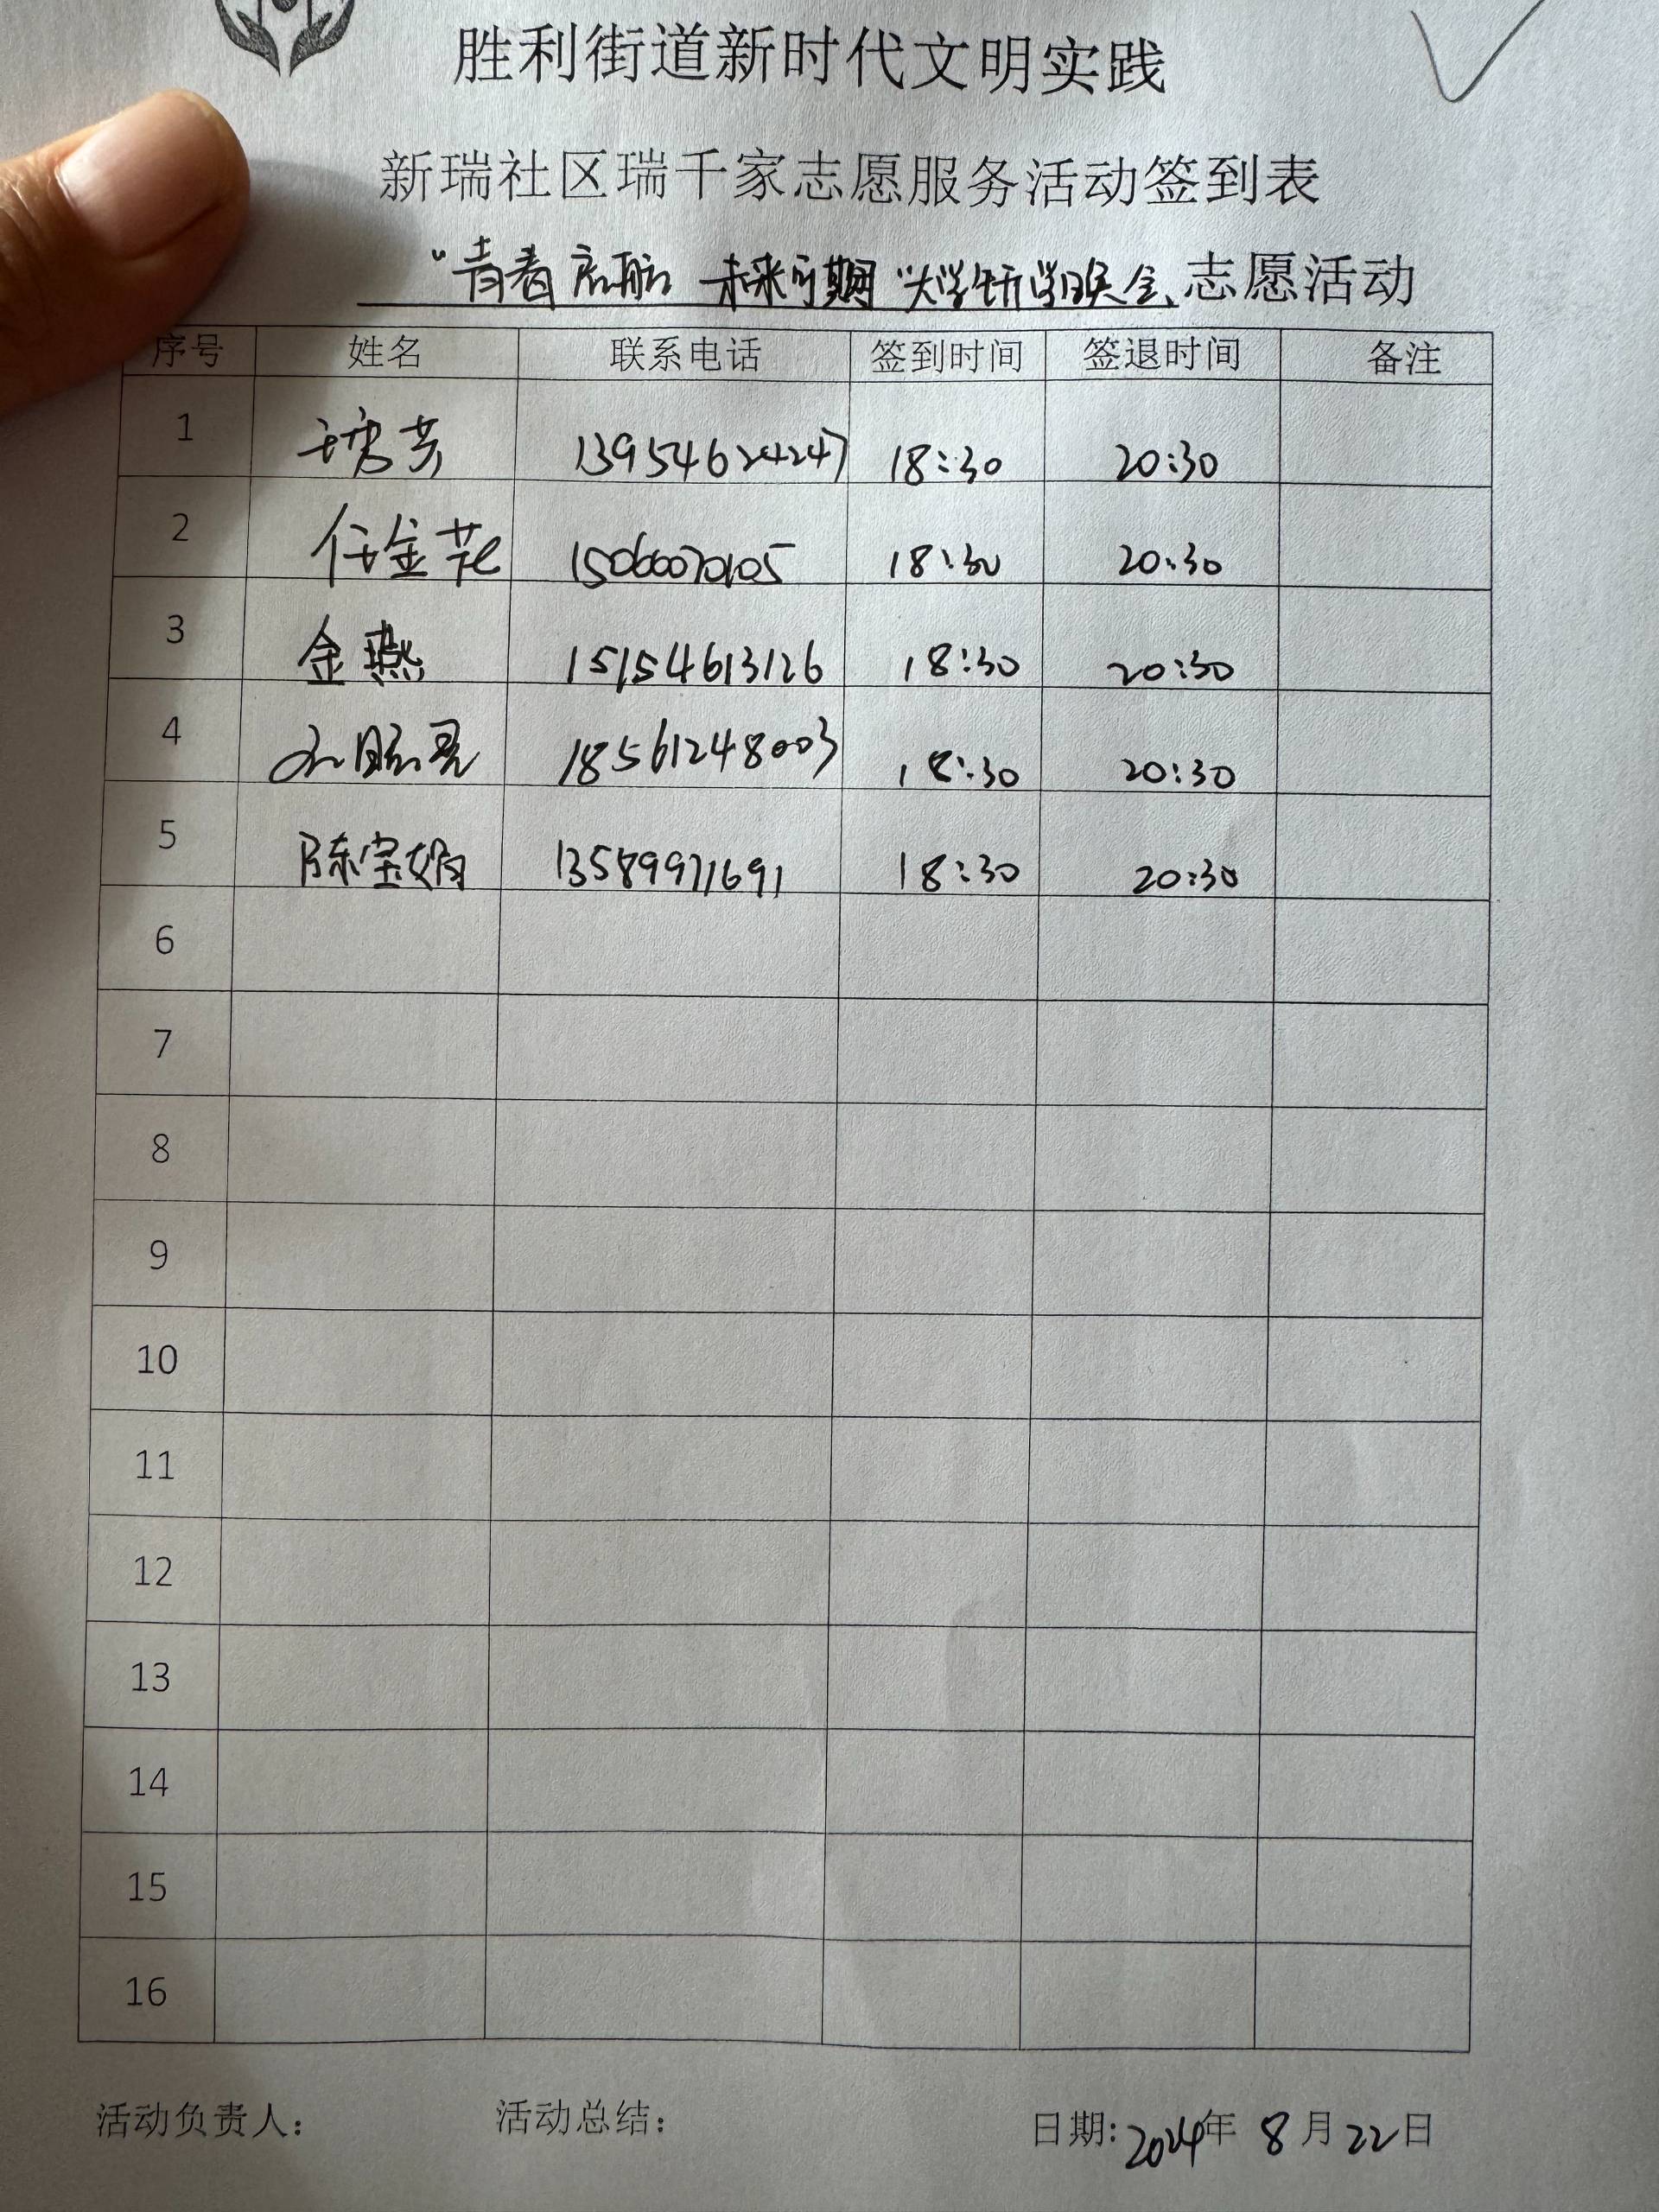 胜利街道新时代文明实践
新瑞社区瑞千家志愿服务活动签到表
“青春启航 未来可期”大学生开学欢会 志愿活动
序号 姓名 联系电话 签到时间 签退时间 备注
1 芳 13954624247 18:30 20:30
2 任金花 18:30 20:30
3 金燕 15154613126 18:30 20:30
4 18561248003 18:30 20:30
5 陈宝娟 13589971691 18:30 20:30
6
7
8
9
10
11
12
13
14
15
16
活动负责人: 活动总结: 日期:2024年 8月22日